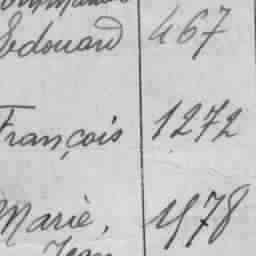 Edouard 467
François 1272
Marie, 1578
Jean